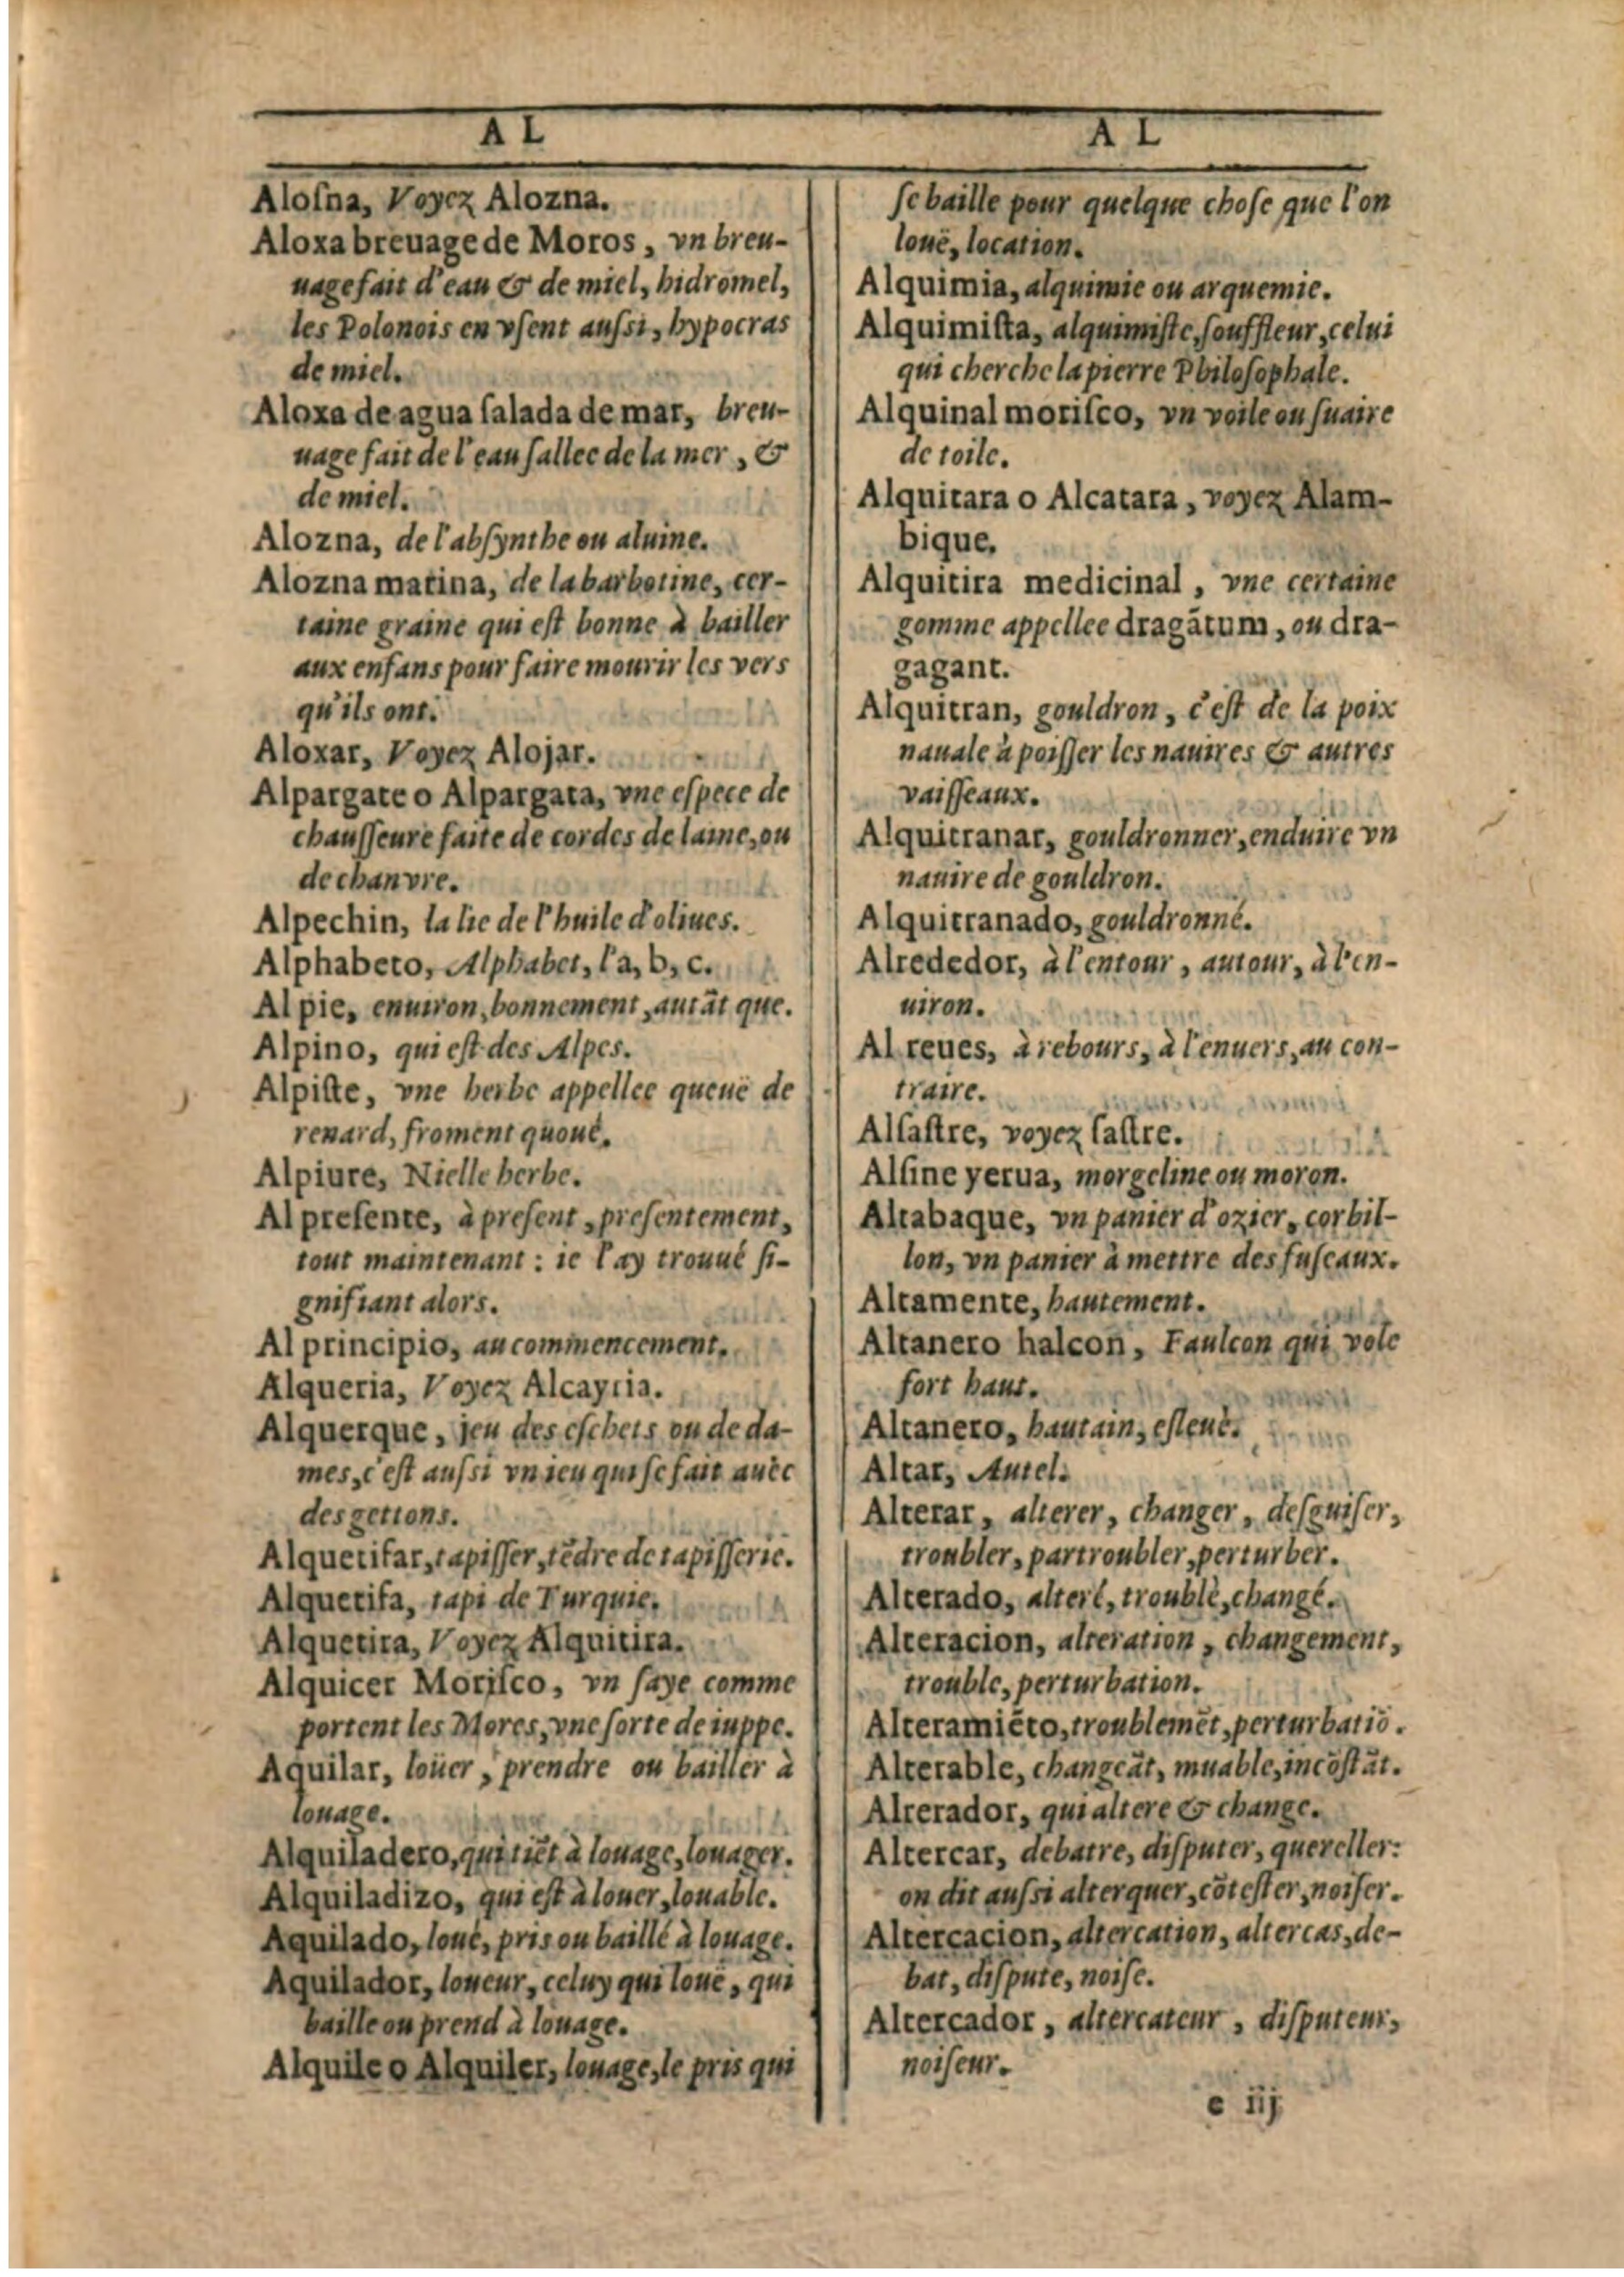 A L
Aloſna, Voyez Alozna.
Aloxa breuage de Moros, vn breu-
uage fait d'eau & de miel, hidromel,
les Polonois en vſent auſsi, hypocras
de miel.
Aloxa de agua ſalada de mar, breu-
uage fait de l'eau ſallee de la mer, &
de miel.
Alozna, de l'abſynthe ou aluine.
Alozna marina, de la barbotine, cer-
taine graine qui eſt bonne à bailler
aux enfans pour faire mourir les vers
qu'ils ont.
Aloxar, Voyez Alojar.
Alpargate o Alpargata, vne eſpece de
chauſſeure faite de cordes de laine, ou
de chanvre.
Alpechin, la lie de l'huile d'oliues.
Alphabeto, Alphabet, l'a, b, c.
Al pie, enuiron, bonnement, autāt que.
Alpino, qui eſt des Alpes.
Alpiſte, vne herbe appellee queuë de
renard, froment quoué.
Alpiure, Nielle herbe.
Al preſente, à preſent, preſentement,
tout maintenant : ie l'ay trouué ſi-
gnifiant alors.
Al principio, au commencement.
Alqueria, Voyez Alcayria.
Alquerque, jeu des eſchets ou de da-
mes, c'eſt auſsi vn ieu qui ſe fait auèc
des gettons.
Alquetifar, tapiſſer, tēdre de tapiſſerie.
Alquetifa, tapi de Turquie.
Alquetira, Voyez Alquitira.
Alquicer Moriſco, vn ſaye comme
portent les Mores, vne ſorte de iuppe.
Aquilar, loüer, prendre ou bailler à
louage.
Alquiladero, qui tiēt à louage, louager.
Alquiladizo, qui eſt à louer, louable.
Aquilado, loué, pris ou baillé à louage.
Aquilador, loueur, celuy qui louë, qui
baille ou prend à louage.
Alquile o Alquiler, louage, le pris qui
A L
ſe baille pour quelque choſe que l'on
louë, location.
Alquimia, alquimie ou arquemie.
Alquimiſta, alquimiſte, ſouffleur, celui
qui cherche la pierre Philoſophale.
Alquinal moriſco, vn voile ou ſuaire
de toile.
Alquitara o Alcatara, voyez Alam-
bique.
Alquitira medicinal, vne certaine
gomme appellee dragātum, ou dra-
gagant.
Alquitran, gouldron, c'eſt de la poix
nauale à poiſſer les nauires & autres
vaiſſeaux.
Alquitranar, gouldronner, enduire vn
nauire de gouldron.
Alquitranado, gouldronné.
Alrededor, à l'entour, autour, à l'en-
uiron.
Al reues, à rebours, à l'enuers, au con-
traire.
Alſaſtre, voyez ſaſtre.
Alſine yerua, morgeline ou moron.
Altabaque, vn panier d'ozier, corbil-
lon, vn panier à mettre des fuſeaux.
Altamente, hautement.
Altanero halcon, Faulcon qui vole
fort haut.
Altanero, hautain, eſleué.
Altar, Autel.
Alterar, alterer, changer, deſguiſer,
troubler, partroubler, perturber.
Alterado, alteré, troublé, changé.
Alteracion, alteration, changement,
trouble, perturbation.
Alteramiēto, troublemēt, perturbatiō.
Alterable, changeāt, muable, incōſtāt.
Alterador, qui altere & change.
Altercar, debatre, diſputer, quereller:
on dit auſsi alterquer, cōteſter, noiſer.
Altercacion, altercation, altercas, de-
bat, diſpute, noiſe.
Altercador, altercateur, diſputeur,
noiſeur.
e iij